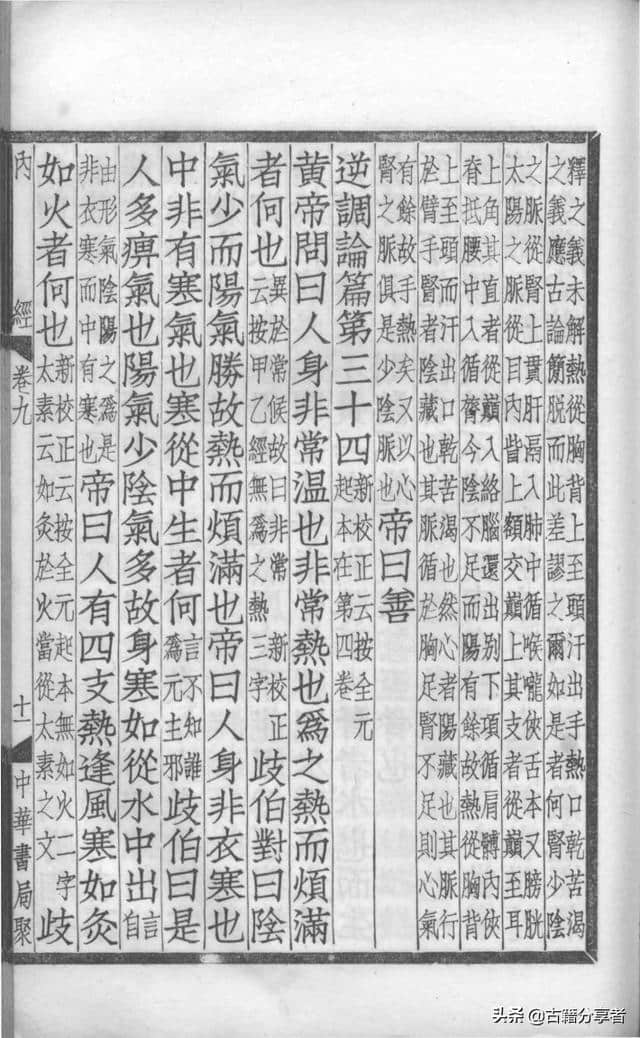 釋之義未解熱從胸背上至頭汗出手熱口乾苦渴
之義應古論簡脫而此差謬之爾如是者何腎少陰
之脈從腎上貫肝鬲入肺中循喉嚨俠舌本又膀胱
太陽之脈從目內眥上額交巔上其支者從巔至耳
上角其直者從巔入絡腦還出別下項循肩髆內俠
脊抵腰中入循膂今陰不足而陽有餘故熱從胸背
上至頭而汗出口乾苦渴也然心者陽藏也其脈行
於臂手腎者陰藏也其脈循於胸足腎不足則心氣
有餘故手熱矣又以心
腎之脈俱是少陰脈也
帝曰善
逆調論篇第三十四
新校正云按全元
起本在第四卷
黃帝問曰人身非常溫也非常熱也為之熱而煩滿
者何也
異於常候故曰非常 新校正
云按甲乙經無為之熱三字
歧伯對曰陰
氣少而陽氣勝故熱而煩滿也帝曰人身非衣寒也
中非有寒氣也寒從中生者何
言不知誰
為元主邪
歧伯曰是
人多痹氣也陽氣少陰氣多故身寒如從水中出
言
自
由形氣陰陽之為是
非衣寒而中有寒也
帝曰人有四支熱逢風寒如灸
如火者何也
新校正云按全元起本無如火二字
太素云如灸於火當從太素之文
歧
內經
卷九
十一
中華書局聚
头条 @古籍分享者